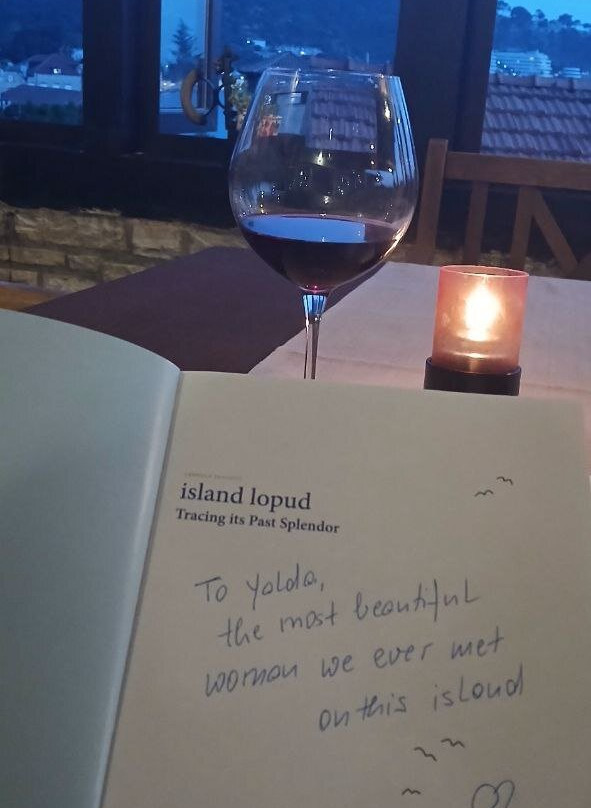 island lopud
Tracing its Past Splendor
To Yalda,
the most beautiful
woman we ever met
on this island